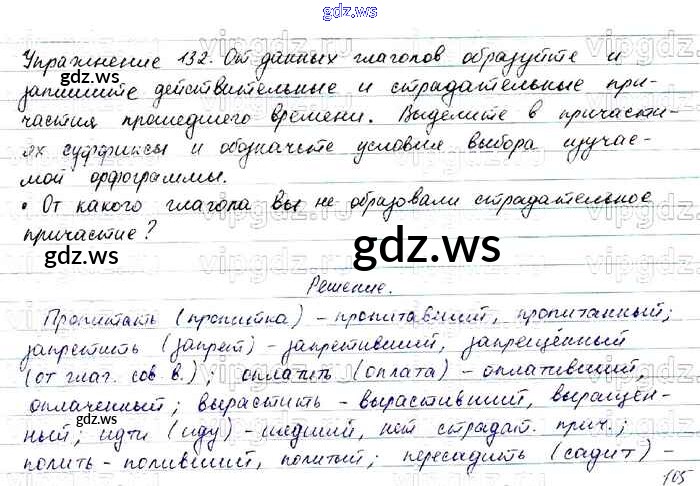 gdz.ws
Упражнение 132. От данных глаголов образуйте и
запишите действительные и страдательные при-
частия прошедшего времени. Выделите в причасти-
ях суффиксы и обозначьте условия выбора изучае-
мой орфограммы.
• От какого глагола вы не образовали страдательное
причастие?
gdz.ws
gdz.ws
gdz.ws
gdz.ws
Решение.
Пропитать (пропитка) – пропитавший, пропитанный;
запретить (запрет) – запретивший, запрещённый
(от глаг. сов в.); оплатить (оплата) – оплативший,
оплаченный; вырастить – вырастивший, выращен-
ный; идти (иду) – шедший, нет страдат. прич.;
полить – поливший, политый; пересадить (садит) –
105